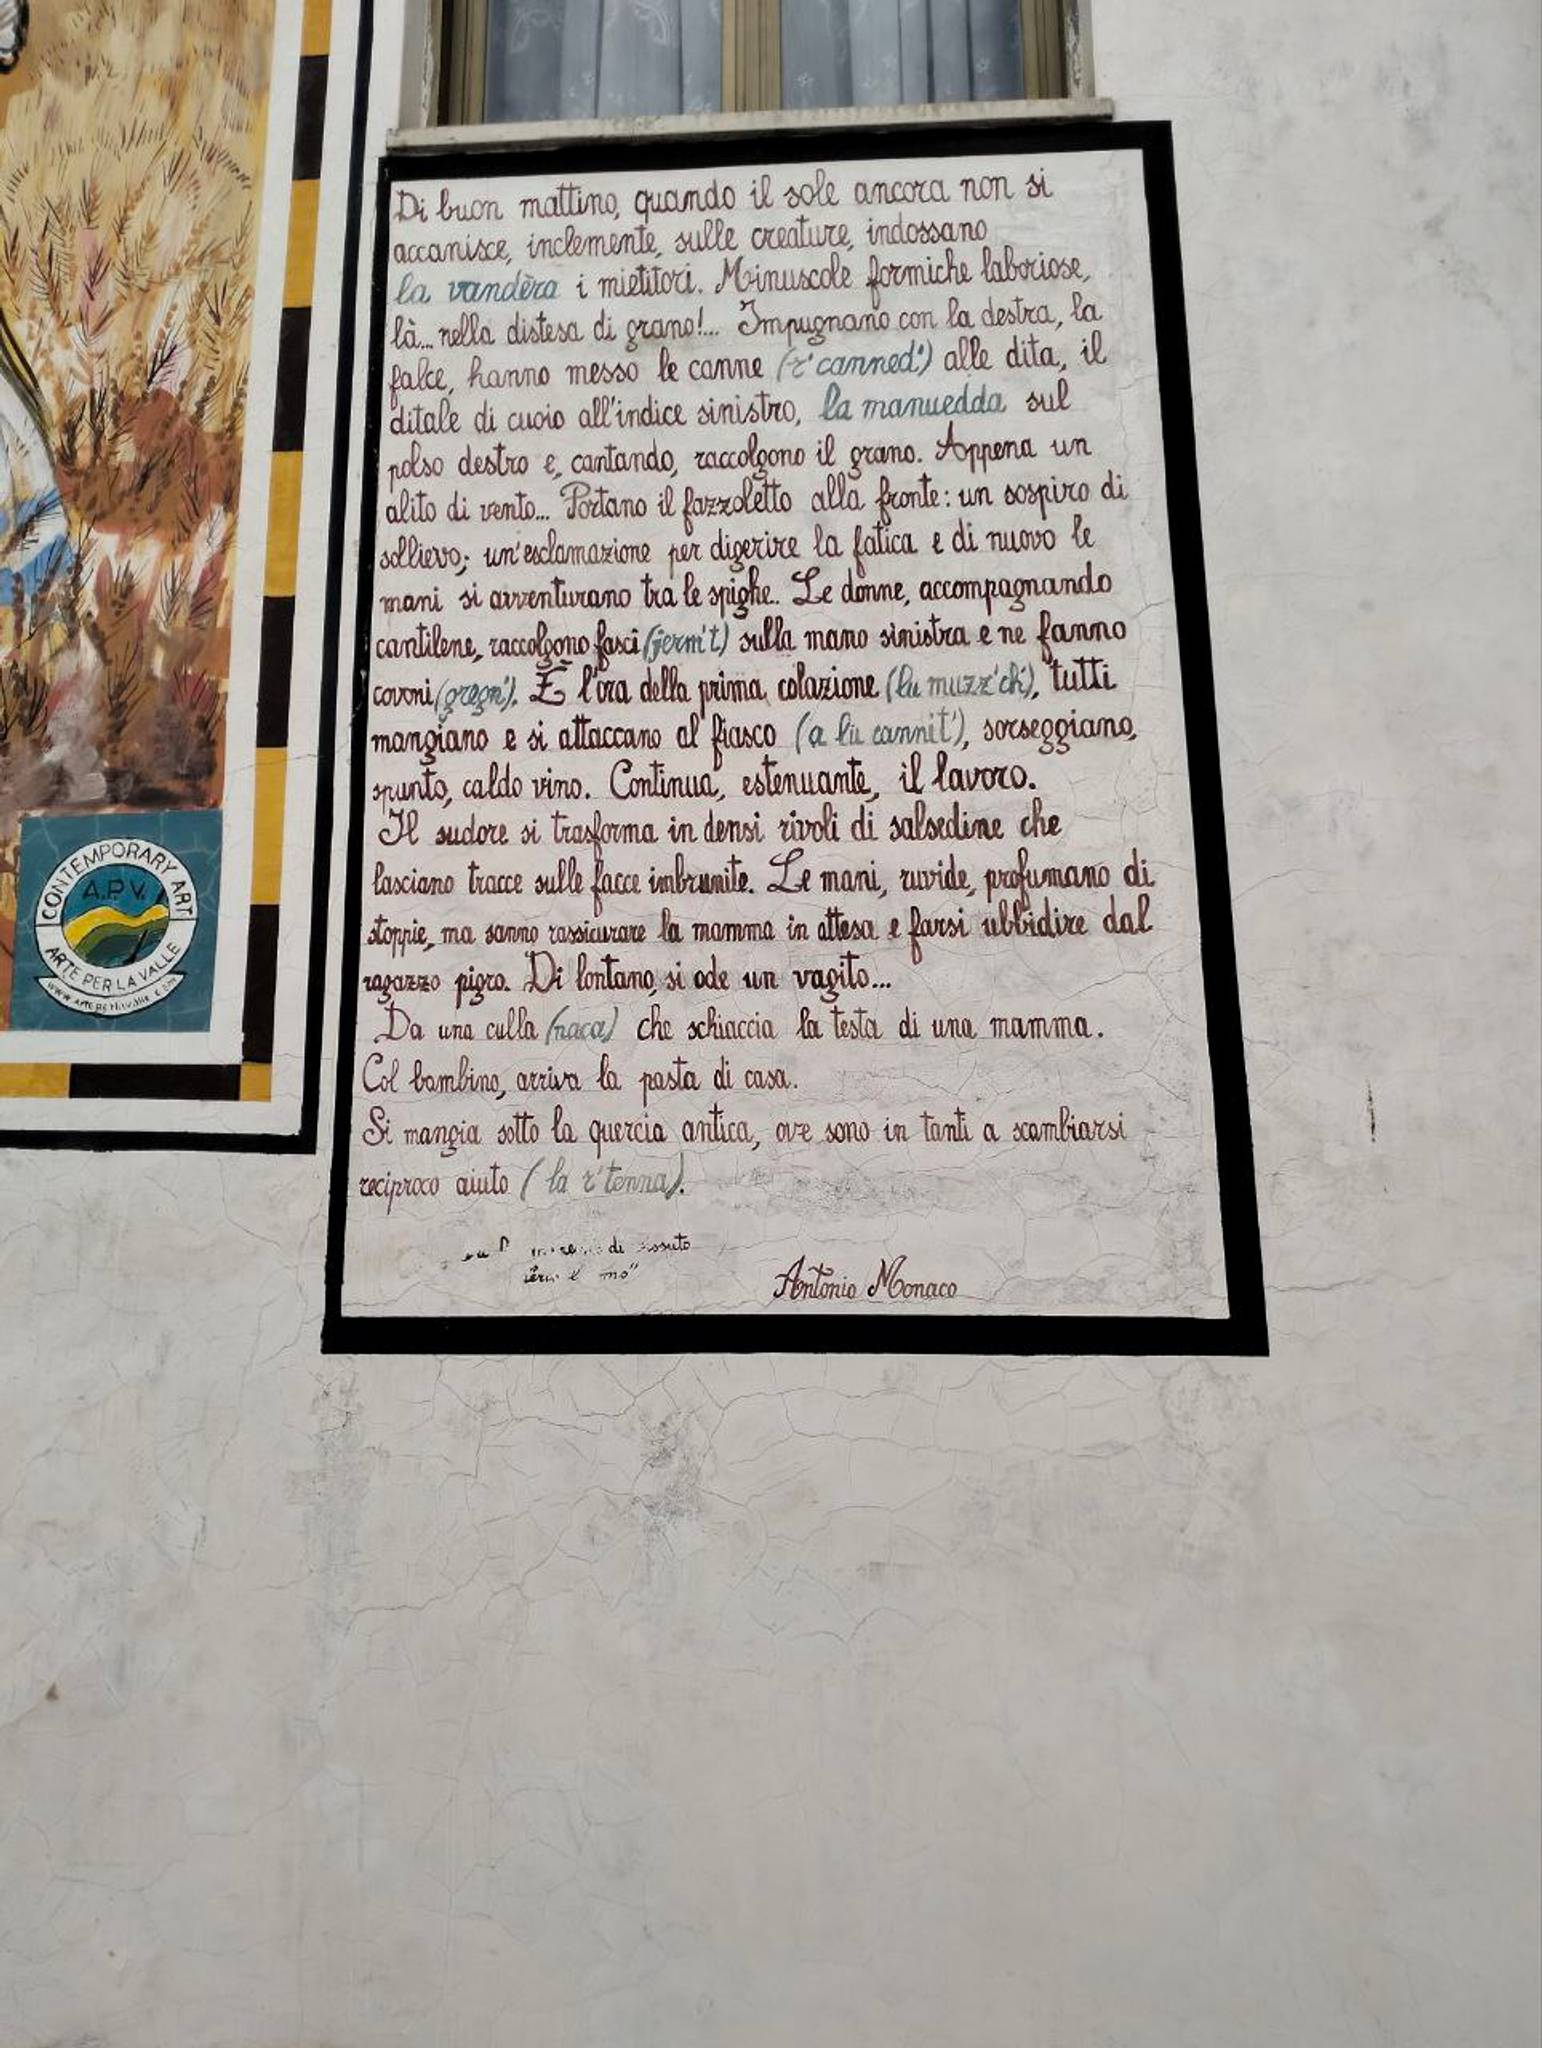 Di buon mattino, quando il sole ancora non si
accanisce, inclemente, sulle creature, indossano
la vandèra i mietitori. Minuscole formiche laboriose,
là... nella distesa di grano!... Impugnano con la destra, la
falce, hanno messo le canne (r' canned') alle dita, il
ditale di cuoio all'indice sinistro, la manuedda sul
polso destro e, cantando, raccolgono il grano. Appena un
alito di vento... Portano il fazzoletto alla fronte: un sospiro di
sollievo; un'esclamazione per digerire la fatica e di nuovo le
mani si avventurano tra le spighe. Le donne, accompagnando
cantilene, raccolgono fasci (jerm't) sulla mano sinistra e ne fanno
covoni (gregn'). È l'ora della prima colazione (lu muzz'ch'), tutti
mangiano e si attaccano al fiasco (a lu cannit'), sorseggiano,
spunto, caldo vino. Continua, estenuante, il lavoro.
Il sudore si trasforma in densi rivoli di salsedine che
lasciano tracce sulle facce imbrunite. Le mani, ruvide, profumano di
stoppie, ma sanno rassicurare la mamma in attesa e farsi ubbidire dal
ragazzo pigro. Di lontano, si ode un vagito...
Da una culla (naca) che schiaccia la testa di una mamma.
Col bambino, arriva la pasta di casa.
Si mangia sotto la quercia antica, ove sono in tanti a scambiarsi
reciproco aiuto (la r'tenna).
di
Antonio Monaco
CONTEMPORARY ART
A.P.V.
ARTE PER LA VALLE